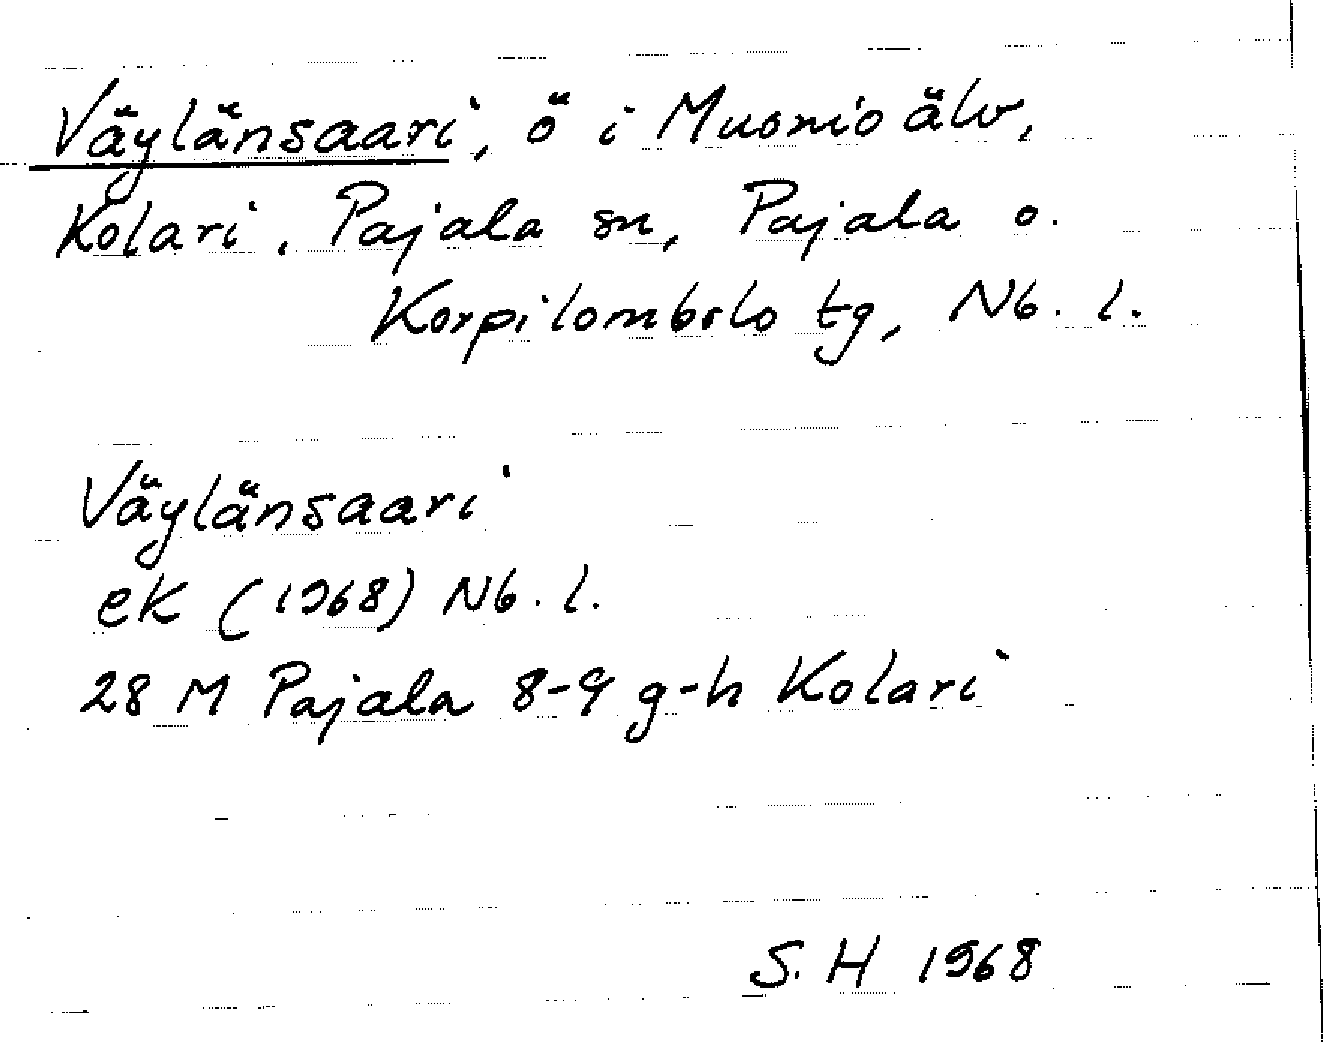 Väylänsaari, ö i Muonio älv,
Kolari, Pajala sn, Pajala o.
Korpilombolo tg, Nb. l.
Väylänsaari
ek (1968) Nb. l.
28 M Pajala 8-9 g-h Kolari
S. H 1968